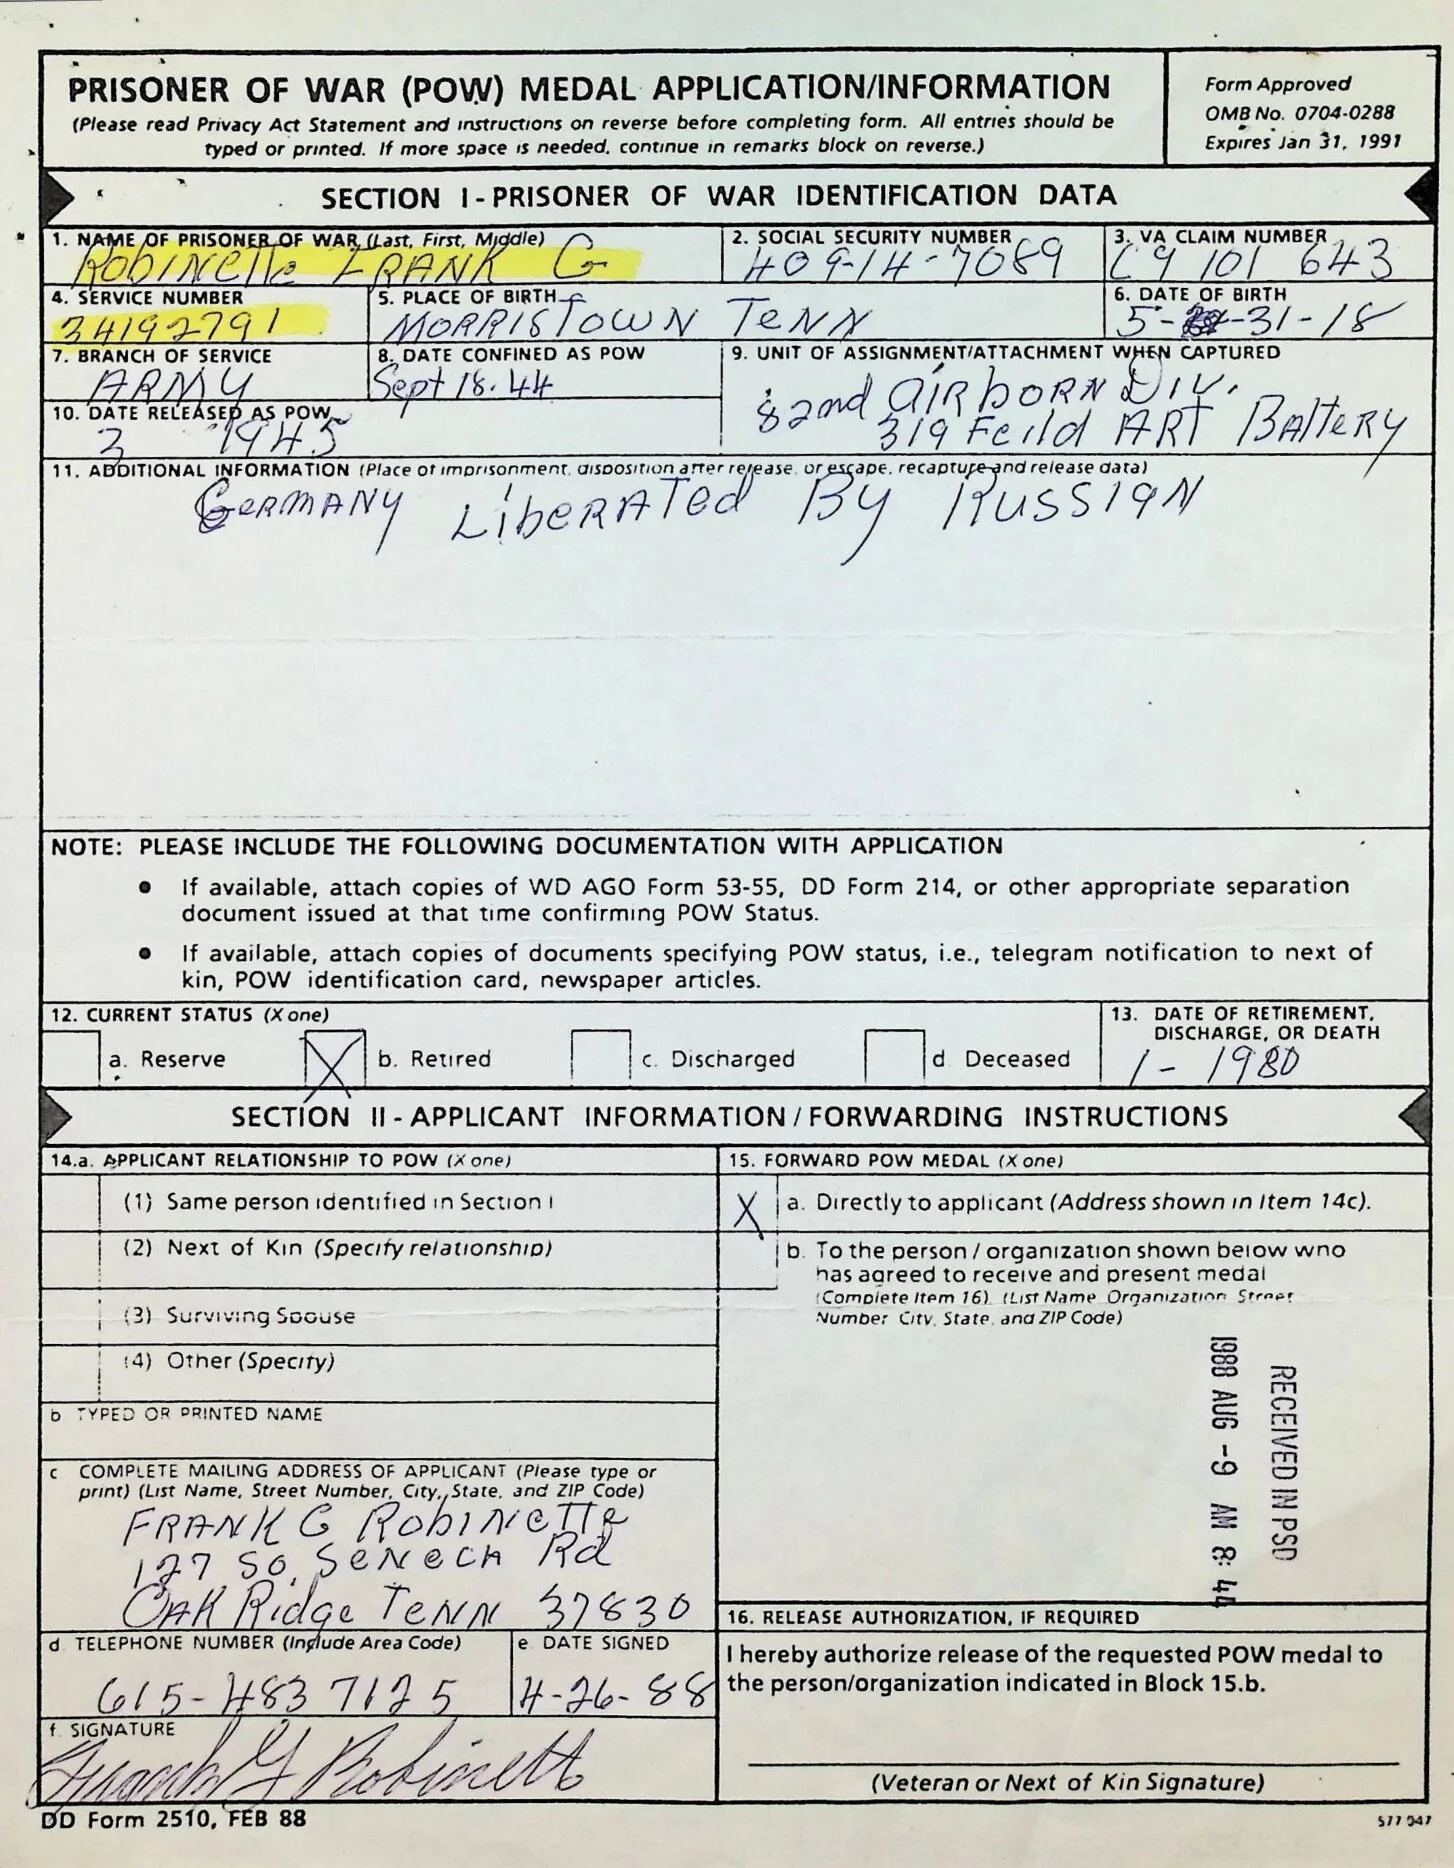 PRISONER OF WAR (POW) MEDAL APPLICATION/INFORMATION
(Please read Privacy Act Statement and instructions on reverse before completing form. All entries should be
typed or printed. If more space is needed, continue in remarks block on reverse.)
Form Approved
OMB No. 0704-0288
Expires Jan 31, 1991
SECTION I - PRISONER OF WAR IDENTIFICATION DATA
1. NAME OF PRISONER OF WAR (Last, First, Middle)
Robinette FRANK G
2. SOCIAL SECURITY NUMBER
409-14-7089
3. VA CLAIM NUMBER
C9 101 643
4. SERVICE NUMBER
34192791
5. PLACE OF BIRTH
MORRISTOWN TENN
6. DATE OF BIRTH
5-31-18
7. BRANCH OF SERVICE
ARMY
8. DATE CONFINED AS POW
Sept 18. 44
9. UNIT OF ASSIGNMENT/ATTACHMENT WHEN CAPTURED
82nd AIRbORN DIV.
319 Feild ART BAttERY
10. DATE RELEASED AS POW
3 1945
11. ADDITIONAL INFORMATION (Place of imprisonment, disposition after release, or escape, recapture and release data)
GERMANY LibERATED By RUSSIAN
NOTE: PLEASE INCLUDE THE FOLLOWING DOCUMENTATION WITH APPLICATION
• If available, attach copies of WD AGO Form 53-55, DD Form 214, or other appropriate separation
document issued at that time confirming POW Status.
• If available, attach copies of documents specifying POW status, i.e., telegram notification to next of
kin, POW identification card, newspaper articles.
12. CURRENT STATUS (X one)
a. Reserve
X b. Retired
c. Discharged
d. Deceased
13. DATE OF RETIREMENT,
DISCHARGE, OR DEATH
1 - 1980
SECTION II - APPLICANT INFORMATION / FORWARDING INSTRUCTIONS
14.a. APPLICANT RELATIONSHIP TO POW (X one)
(1) Same person identified in Section I
(2) Next of Kin (Specify relationship)
(3) Surviving Spouse
(4) Other (Specify)
b TYPED OR PRINTED NAME
c COMPLETE MAILING ADDRESS OF APPLICANT (Please type or
print) (List Name, Street Number, City, State, and ZIP Code)
FRANK G RObINETTE
127 SO. SENECA Rd
OAK Ridge TENN 37830
d TELEPHONE NUMBER (Include Area Code)
615-483 7125
e. DATE SIGNED
4-26-88
f. SIGNATURE
Frank G Robinette
15. FORWARD POW MEDAL (X one)
X a. Directly to applicant (Address shown in Item 14c).
b. To the person / organization shown below who
has agreed to receive and present medal
(Complete Item 16) (List Name Organization Street
Number City, State, and ZIP Code)
RECEIVED IN PSD
1988 AUG -9 AM 8:44
16. RELEASE AUTHORIZATION, IF REQUIRED
I hereby authorize release of the requested POW medal to
the person/organization indicated in Block 15.b.
(Veteran or Next of Kin Signature)
DD Form 2510, FEB 88
577 047